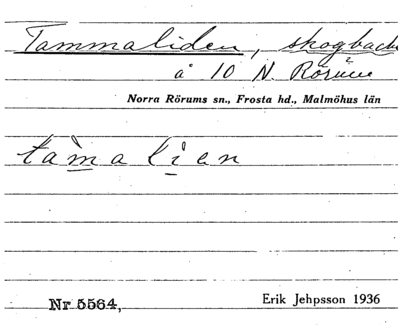 Tammaliden, skogbacke
å 10 N. Rörum
Norra Rörums sn., Frosta hd., Malmöhus län
tàmalien
Nr 5564,
Erik Jehpsson 1936